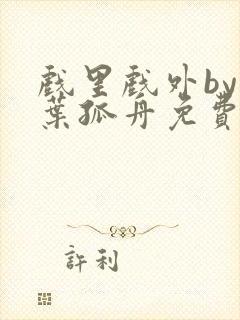 戲里戲外by
葉孤舟免費
許利